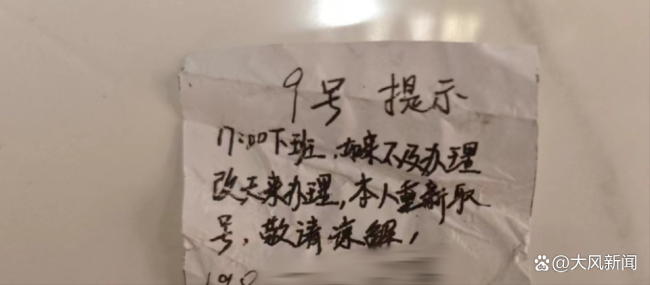 9号 提示
17:00下班,如来不及办理
改天来办理,本人重新取
号,敬请谅解,
大风新闻